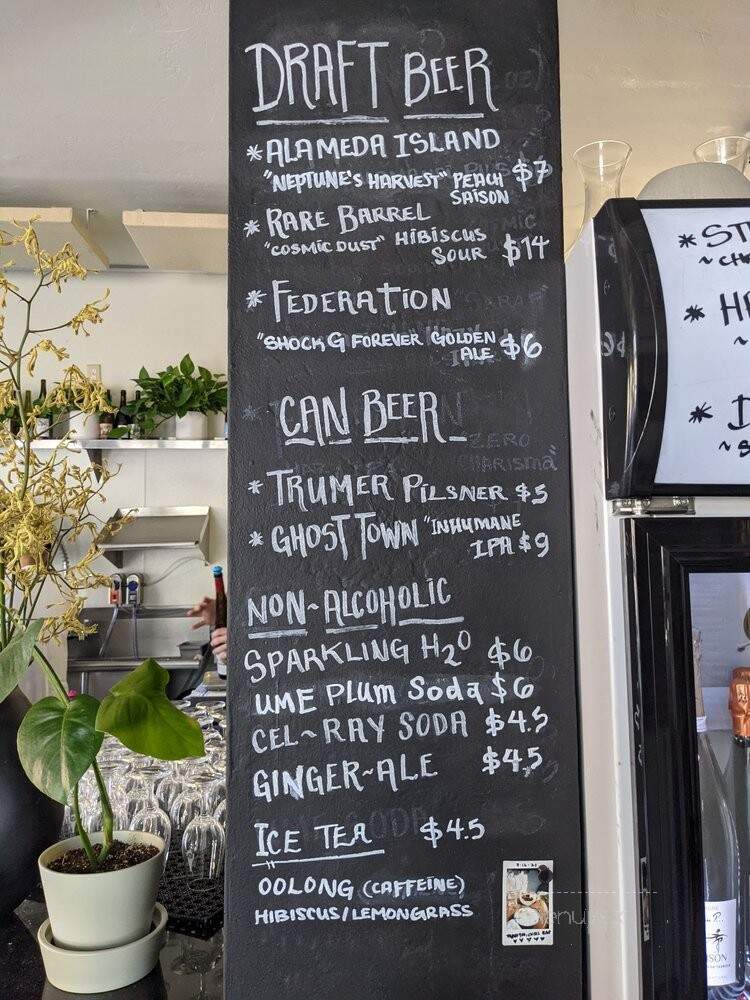 DRAFT BEER
*ALAMEDA ISLAND
"NEPTUNE'S HARVEST" PEACH $7
SAISON
*RARE BARREL
"COSMIC DUST" HIBISCUS
SOUR $14
*FEDERATION
"SHOCK G FOREVER GOLDEN
ALE $6
CAN BEER
ZERO
CHARISMA"
*TRUMER PILSNER $5
*GHOST TOWN "INHUMANE
IPA $9
NON~ALCOHOLIC
SPARKLING H2O $6
UME PLUM SODA $6
CEL~RAY SODA $4.5
GINGER~ALE $4.5
ICE TEA $4.5
OOLONG (CAFFEINE)
HIBISCUS/LEMONGRASS
*ST
*H
*D